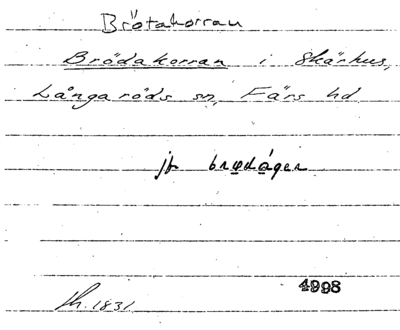 Brötakorran
Brödakorran i Skärhus,
Långaröds sn, Färs hd
jfr brødáger
4998
Lh. 1831